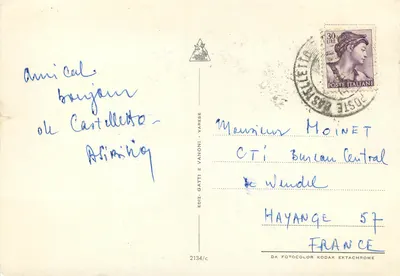 amical
bonjour
de Castelletto
30
LIRE
POSTE ITALIANE
POSTE CASTELLETTO
EDIZ. GATTI E VANONI - VARESE
2134/c
Monsieur MOINET
CTI Bureau Central
de Wendel
HAYANGE 57
FRANCE
DA FOTOCOLOR KODAK EKTACHROME